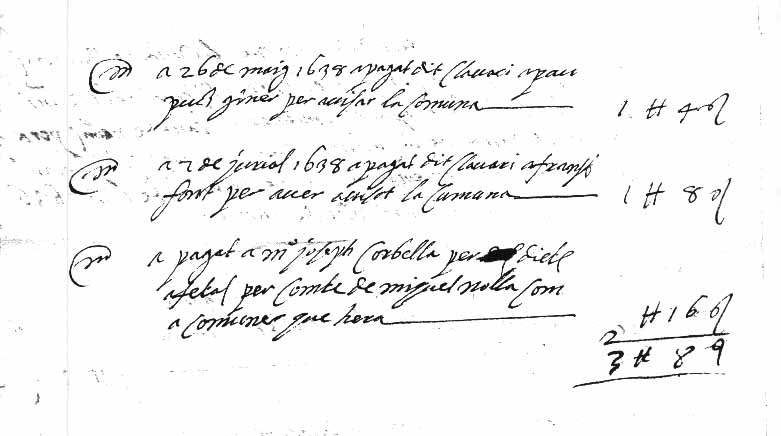 m a 26 de maig 1638 a pagat dit Clavari a pau
puls giner per avisar la Comuna 1 ₶ 4 s
m a 2 de juriol 1638 a pagat dit Clavari a fransc
font per aver avisat la Cumuna 1 ₶ 8 s
m a pagat a mo joseph Corbella per diets
a fetas per Comte de miquel nolla Com
a Comuner que hera
2 ₶ 16 s
3 ₶ 8 9